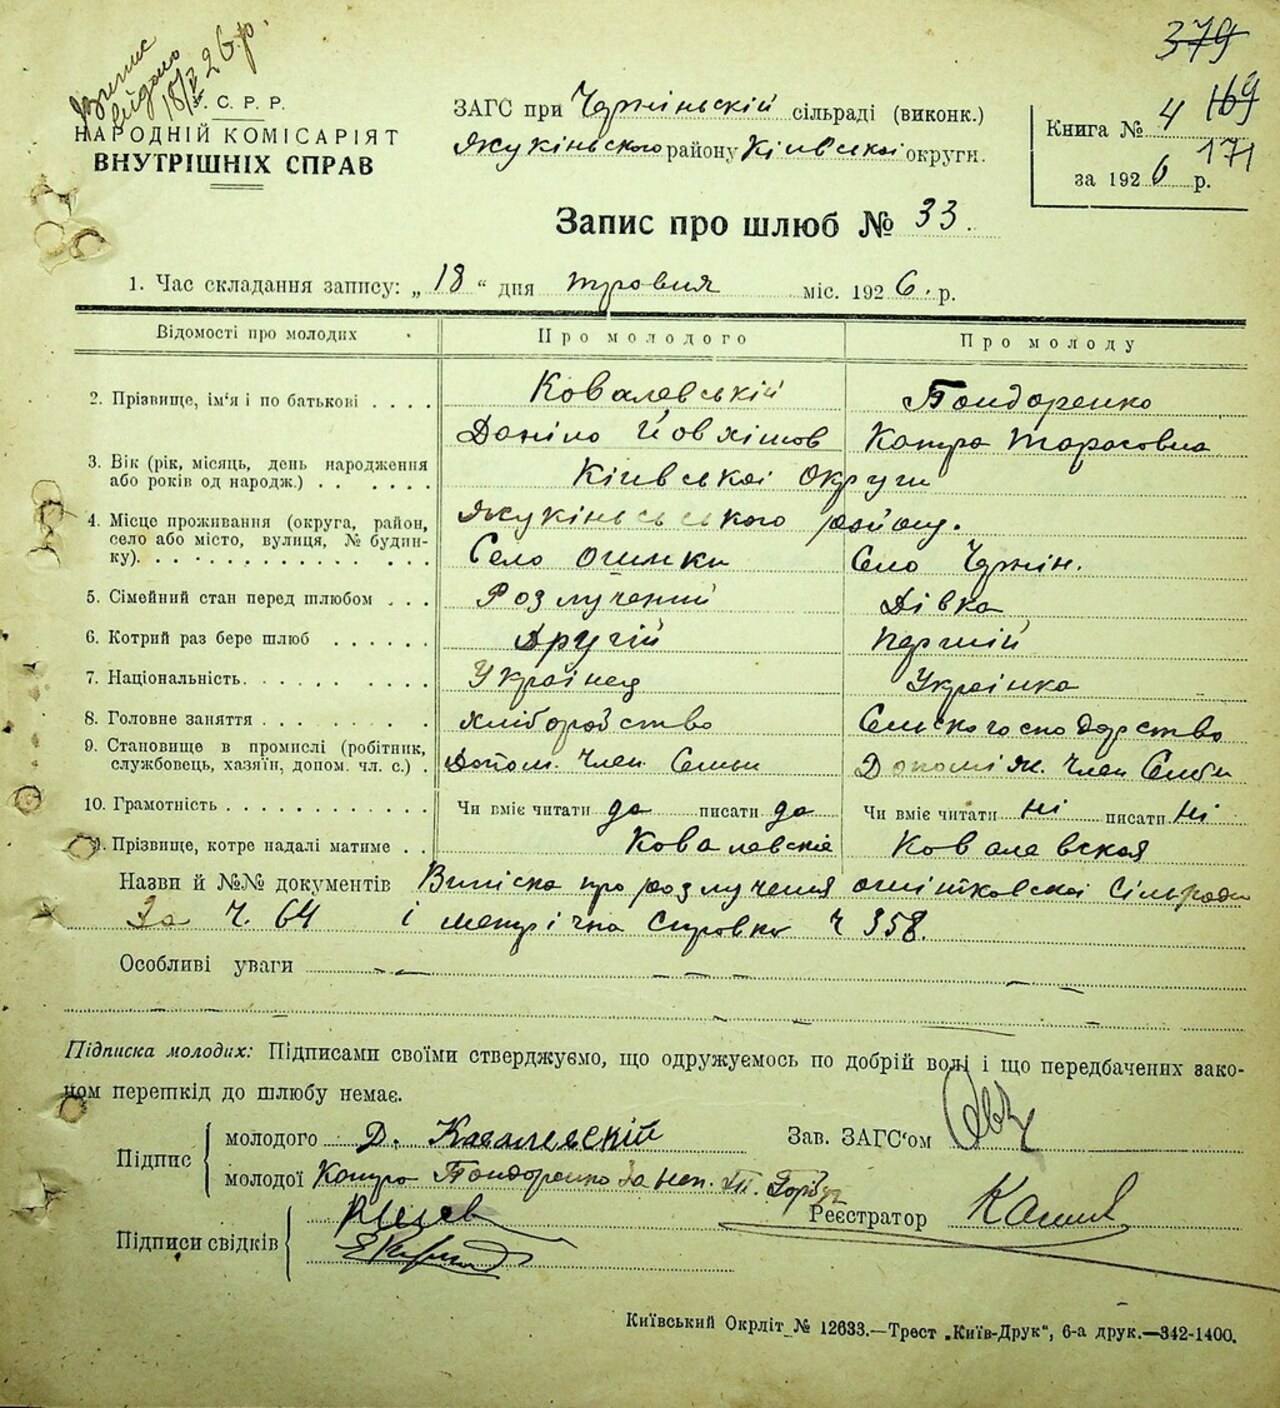 Випис
видано
18/V 26 р.
379
169
171
. С. Р. Р.
НАРОДНІЙ КОМІСАРІЯТ
ВНУТРІШНІХ СПРАВ
ЗАГС при сільраді (виконк.)
району Київської округи.
Книга № 4
за 1926 р.
Запис про шлюб № 33.
1. Час складання запису: „18“ дня травня міс. 1926. р.
Відомості про молодих
Про молодого
Про молоду
2. Прізвище, ім'я і по батькові . . . .
Ковалевській
Бондаренко
Даніло Йовхімов
Катра Тарасовна
3. Вік (рік, місяць, день народження
або років од народж.) . . . . . .
Кіівської Округи
4. Місце проживання (округа, район,
село або місто, вулиця, № будин-
ку). . . . . . . . . . . . . . .
району.
Село
Село
5. Сімейний стан перед шлюбом . . .
Розлучений
Дівка
6. Котрий раз бере шлюб . . . . . .
Другій
Першій
7. Національність. . . . . . . . . .
Українец
Украінка
8. Головне заняття . . . . . . . . .
Хліборобство
Сельскогосподарство
9. Становище в промислі (робітник,
службовець, хазяїн, допом. чл. с.) .
Допом. Член Семьи
Допоміж. Член Семьи
10. Грамотність . . . . . . . . . . . .
Чи вміє читати да писати да
Чи вміє читати ні писати ні
11. Прізвище, котре надалі матиме . .
Ковалевскій
Ковалевская
Назви й №№ документів Виписка про розлучення Сільради
За Ч. 64 і метрічна Справка Ч 358.
Особливі уваги
Підписка молодих: Підписами своїми стверджуємо, що одружуємось по добрій волі і що передбачених зако-
ном перешкід до шлюбу немає.
Підпис
молодого Д. Ковалевскій
Зав. ЗАГС'ом
молодої Катра Бондаренко За неп.
Реєстратор
Підписи свідків
Київський Окрліт № 12633.—Трест „Київ-Друк“, 6-а друк.—342-1400.